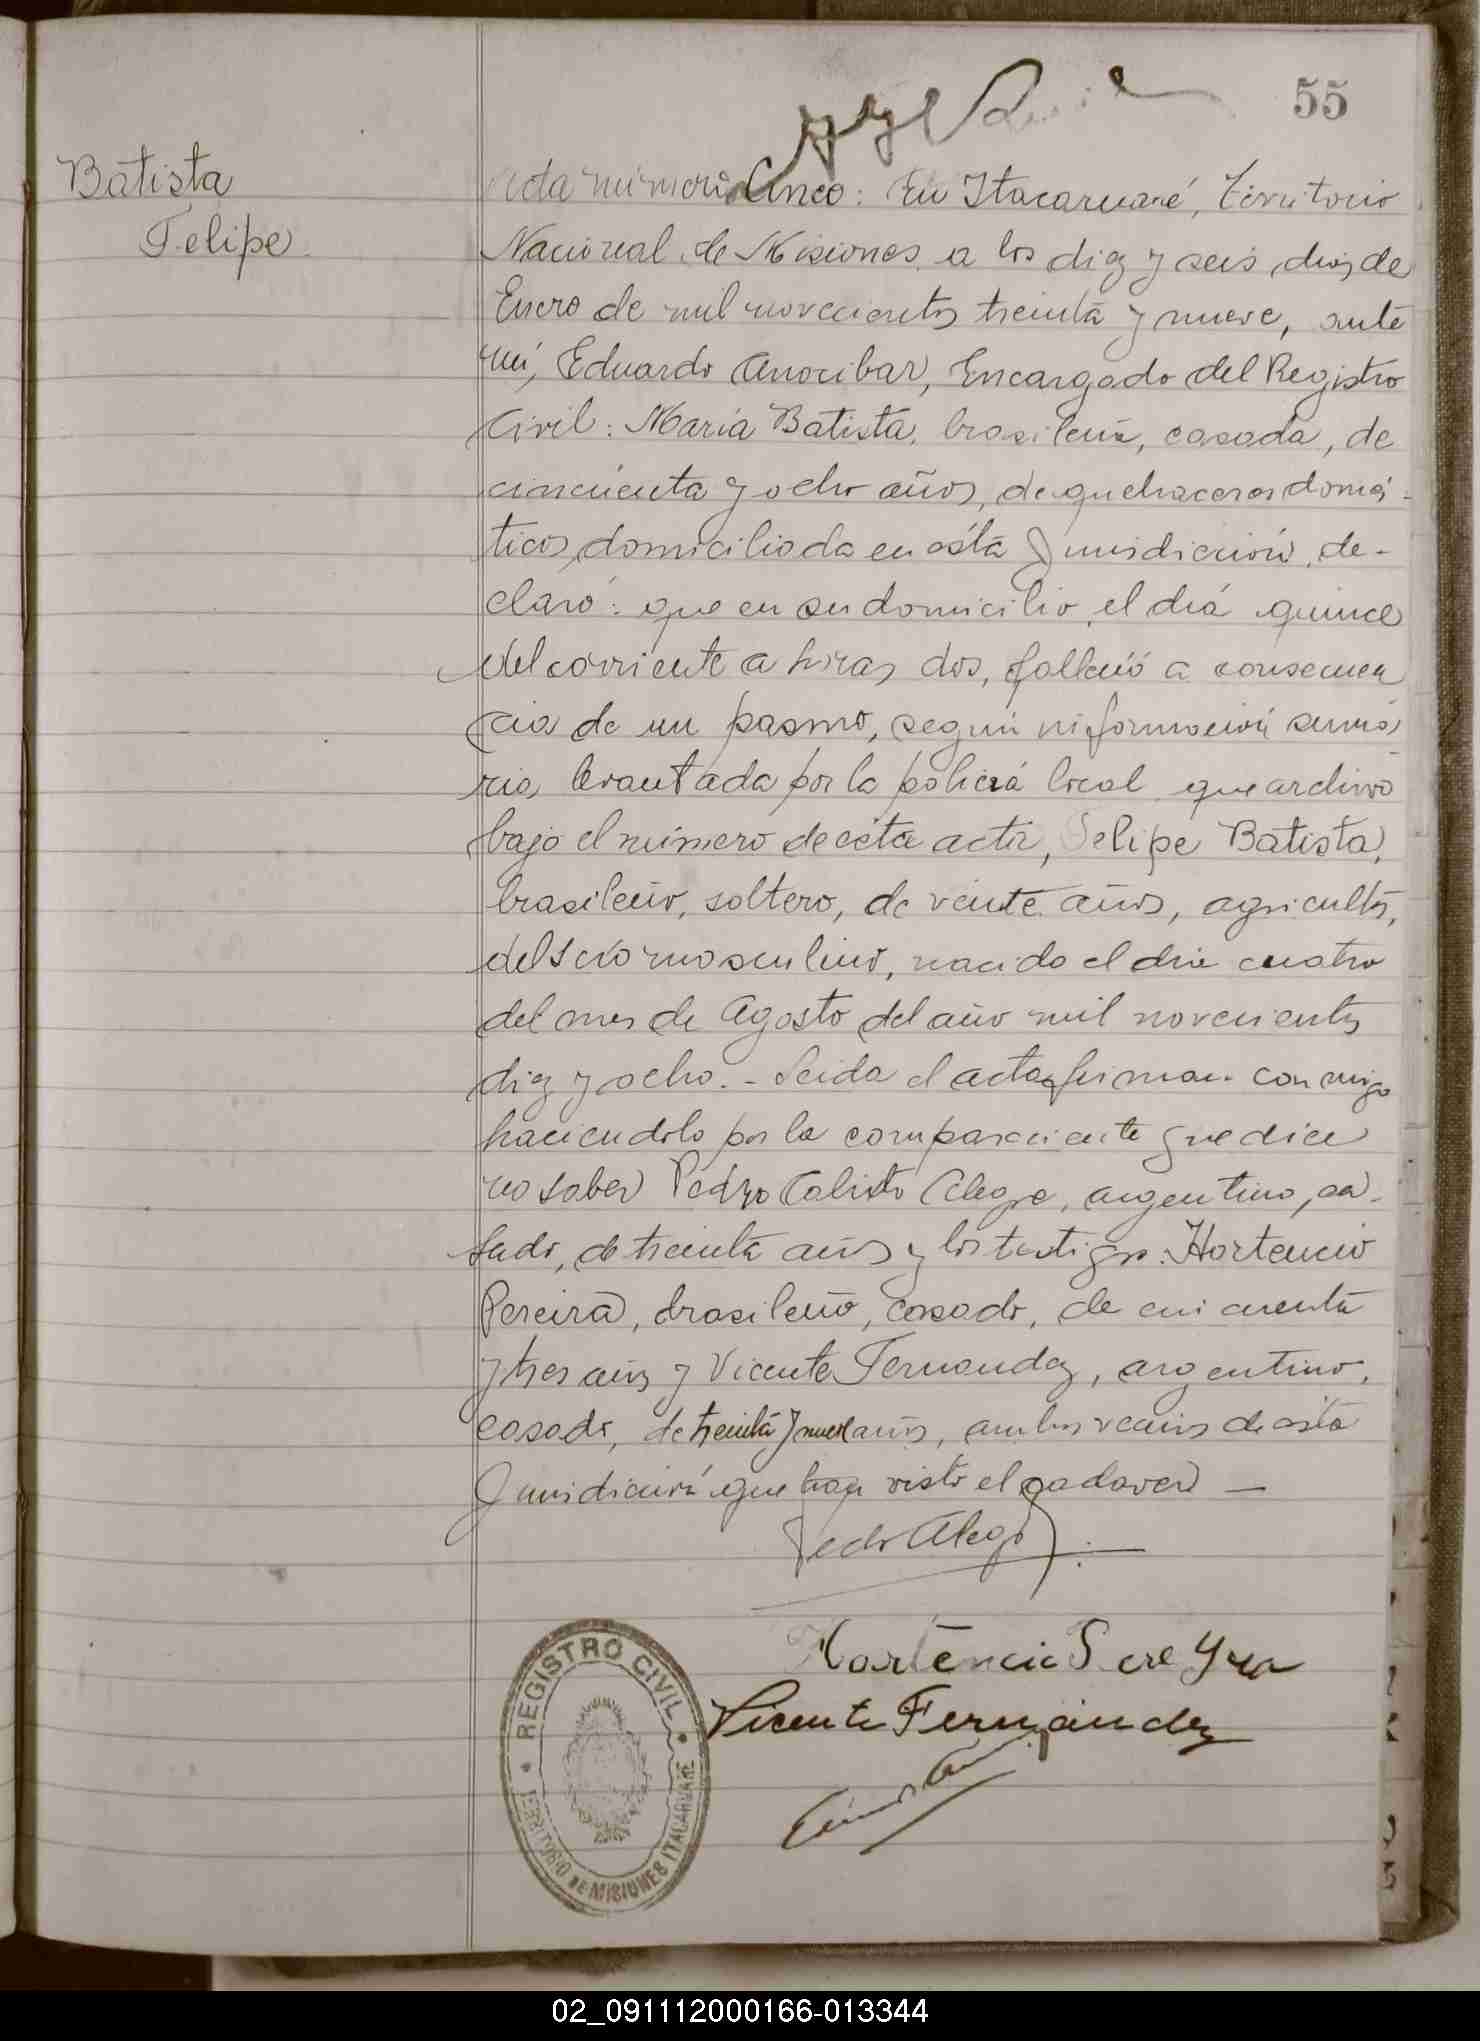 55
Batista
Felipe
Acta número Cinco: En Itacaruaré, Territorio
Nacional de Misiones a los diez y seis dias de
Enero de mil novecientos treinta y nueve, ante
mí, Eduardo Anocibar, Encargado del Registro
Civil: María Batista, brasileña, casada, de
cincuenta y ocho años, de quehaceres domés-
ticos, domiciliada en ésta Jurisdicción, de-
claró: que en su domicilio, el día quince
del corriente a horas dos, falleció a consecuen
cia de un pasmo, según información suma
ria, levantada por la policía local que archivo
bajo el número de esta acta, Felipe Batista,
brasileño, soltero, de veinte años, agricultor,
del sexo masculino, nacido el día cuatro
del mes de Agosto del año mil novecientos
diez y ocho. - Leida el acta firman conmigo
haciendolo por la compareciente que dice
no saber Pedro Calisto Alegre, argentino, ca-
sado, de treinta años y los testigos: Hortencio
Pereira, brasileño, casado, de cincuenta
y tres años y Vicente Fernandez, argentino,
casado, de treinta y nueve años, ambos vecinos de ésta
Jurisdicción que han visto el cadaver —
Pedro Alegre
Hortencio Pereyra
Vicente Fernández
REGISTRO CIVIL
TERRITORIO DE MISIONES ITACARUARE
02_091112000166-013344